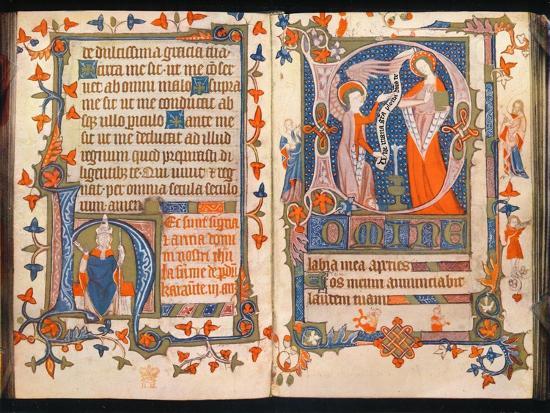 de dulcissima gracia tua
Carta me sit. ut me conser
uet ab omni malo. Supra
me sit ut me conducat ab
omni periculo. Ante me
sit ut me deducat ad illud
regnum quod preparasti di
ligentibus te. Qui uiuit et reg
nat. per omnia secula seculo
rum. amen.
Ec sunt signa
et arma domi
ni nostri
Aue maria gracia plena dominus te
D
omine
labia mea aperies.
Et os meum annunciabit
laudem tuam.